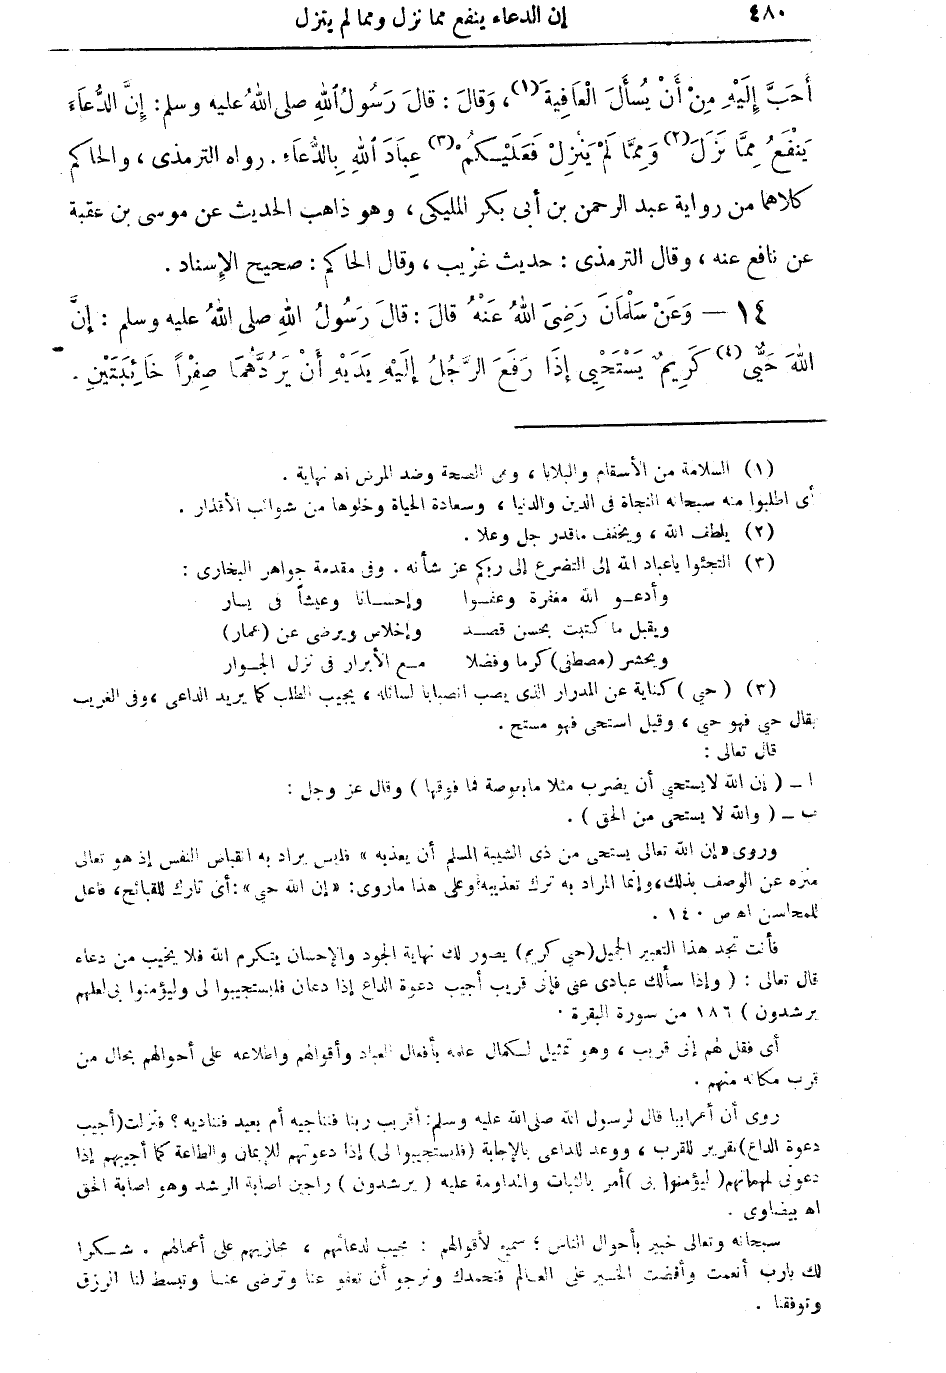 ٤٨٠
إن الدعاء ينفع مما نزل ومما لم ينزل
أَحَبَّ إِلَيْهِ مِنْ أَنْ يُسْأَلَ الْعَافِيَةَ (١)، وَقَالَ : قَالَ رَسُولُ اللهِ صلى اللهُ عليه وسلم : إِنَّ الدُّعَاءَ
يَنْفَعُ مِمَّا نَزَلَ (٢) وَمِمَّا لَمْ يَنْزِلْ فَعَلَيْكُمْ (٣) عِبَادَ اللهِ بِالدُّعَاءِ . رواه الترمذى ، والحاكم
كلاهما من رواية عبد الرحمن بن أبى بكر المليكى ، وهو ذاهب الحديث عن موسى بن عقبة
عن نافع عنه ، وقال الترمذى : حديث غريب ، وقال الحاكم : صحيح الإسناد .
١٤ — وَعَنْ سَلْمَانَ رَضِىَ اللهُ عَنْهُ قَالَ : قَالَ رَسُولُ اللهِ صلى اللهُ عليه وسلم : إِنَّ
اللهَ حَيِىٌّ (٤) كَرِيمٌ يَسْتَحْيِى إِذَا رَفَعَ الرَّجُلُ إِلَيْهِ يَدَيْهِ أَنْ يَرُدَّهُمَا صِفْراً خَائِبَتَيْنِ .
(١) السلامة من الأسقام والبلايا ، وهى الصحة وضد المرض اه نهاية .
أى اطلبوا منه سبحانه النجاة فى الدين والدنيا ، وسعادة الحياة وخلوها من شوائب الأقذار .
(٢) يلطف الله ، ويخفف ماقدر جل وعلا .
(٣) التجئوا ياعباد الله إلى التضرع إلى ربكم عز شأنه . وفى مقدمة جواهر البخارى :
وأدعـو الله مغفرة وعفـوا وإحسـانا وعيشاً فى يسار
ويقبل ما كتبت بحسن قصـد وإخلاص ويرضى عن (عمار)
ويحشر (مصطفى) كرما وفضلا مـع الأبرار فى نزل الجـوار
(٣) ( حيى ) كناية عن المدرار الذى يصب انصبابا لسائله ، يجيب الطلب كما يريد الداعى ، وفى الغريب
يقال حيى فهو حيى ، وقيل استحى فهو مستح .
قال تعالى :
ا ــ ( إن الله لايستحيى أن يضرب مثلا مابعوضة فما فوقها ) وقال عز وجل :
ب ــ ( والله لا يستحى من الحق ) .
وروى «إن الله تعالى يستحى من ذى الشيبة المسلم أن يعذبه» فليس يراد به انقباض النفس إذ هو تعالى
منزه عن الوصف بذلك، وإنما المراد به ترك تعذيبه وعلى هذا ماروى: «إن الله حيى»: أى تارك للقبائح، فاعل
للمحاسن اه ص ١٤٠ .
فأنت تجد هذا التعبير الجميل (حيى كريم) يصور لك نهاية الجود والإحسان يتكرم الله فلا يخيب من دعاء
قال تعالى : ( وإذا سألك عبادى عنى فإنى قريب أجيب دعوة الداع إذا دعان فليستجيبوا لى وليؤمنوا بى لعلهم
يرشدون ) ١٨٦ من سورة البقرة .
أى فقل لهم إنى قريب ، وهو تمثيل لكمال علمه بأفعال العباد وأقوالهم واطلاعه على أحوالهم بحال من
قرب مكانه منهم .
روى أن أعرابيا قال لرسول الله صلى الله عليه وسلم: أقريب ربنا فنناجيه أم بعيد فنناديه ؟ فنزلت (أجيب
دعوة الداع) تقرير للقرب ، ووعد للداعى بالإجابة (فليستجيبوا لى) إذا دعوتهم للإيمان والطاعة كما أجيبهم إذا
دعونى لمهماتهم (ليؤمنوا بى) أمر بالثبات والمداومة عليه ( يرشدون ) راجين اصابة الرشد وهو اصابة الحق
اه بيضاوى .
سبحانه وتعالى خبير بأحوال الناس ؛ سميع لأقوالهم : مجيب لدعائهم ، مجازيهم على أعمالهم . شـكرا
لك يارب أنعمت وأفضت الخـير على العـالم فنحمدك ونرجو أن تعفو عنا وترضى عنـا وتبسط لنا الرزق
وتوفقنا .